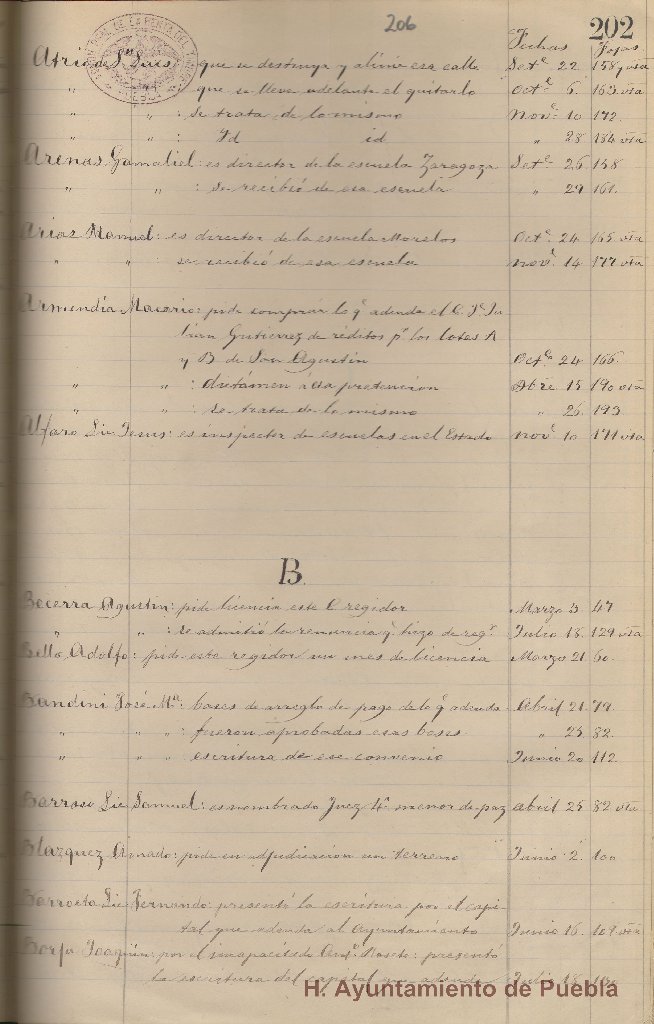 206
202
Fechas Fojas
Atrio de Sn Luis: que se destruya y alinie esa calle Sete. 22 158 vta
" " : que se lleve adelante el quitarlo Octe. 6. 163 vta
" " : se trata de lo mismo Nove. 10 172.
" " : Id id " 28 184 vta
Arenas Gamaliel: es director de la escuela Zaragoza Sete. 26 158
" " : se recibió de esa escuela " 29 161.
Arias Manuel: es director de la escuela Morelos Octe. 24 165 vta
" " : se recibió de esa escuela Nove. 14 177 vta
Armendia Macario: pide comprar lo q. adeuda el C. Ju-
lian Gutierrez de réditos pr. los lotes A
y B de San Agustin Octe. 24 166.
" " : dictámen á esa pretencion Dbre. 15 190 vta
" " : se trata de lo mismo " 26. 193
Alfaro Lic Jesus: es inspector de escuelas en el Estado Nove. 10 171 vta
B.
Becerra Agustin: pide licencia este C regidor Marzo 3 47
" " : se admitió la renuncia q. hizo de regr. Julio 18. 129 vta
Bello Adolfo: pide este regidor un mes de licencia Marzo 21 60.
Bandini José Ma.: bases de arreglo de pago de lo q adeuda Abril 21 79.
" " " : fueron aprobadas esas bases " 25 82.
" " " : escritura de ese convenio Junio 20 112
Barroso Lic Samuel: es nombrado Juez 4o. menor de paz Abril 25 82 vta
Blazquez Amado: pide en adjudicacion un terreno Junio 2. 100
Barroeta Lic Fernando: presentó la escritura por el capi-
tal que adeuda al Ayuntamiento Junio 16. 107 vta
Borja Joaquin: por el incapacitado Anto. presentó
la escritura del capital que adeuda Julio 18
H. Ayuntamiento de Puebla